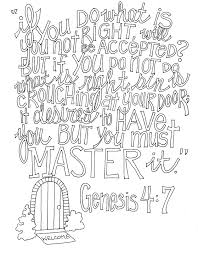 "if you DO what is
RIGHT, will
you not be ACCEPTED?
But if you DO not DO
what is right, sin is
CROUCHING at your DOOR;
it desires to HAVE
you, BUT you must
MASTER it."
Genesis 4:7
WELCOME